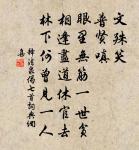 文殊笑
普賢嗔
眼里無筋一世貧
相逢盡道休官去
林下何曾見一人
釋法泉偈七首詞典網
集